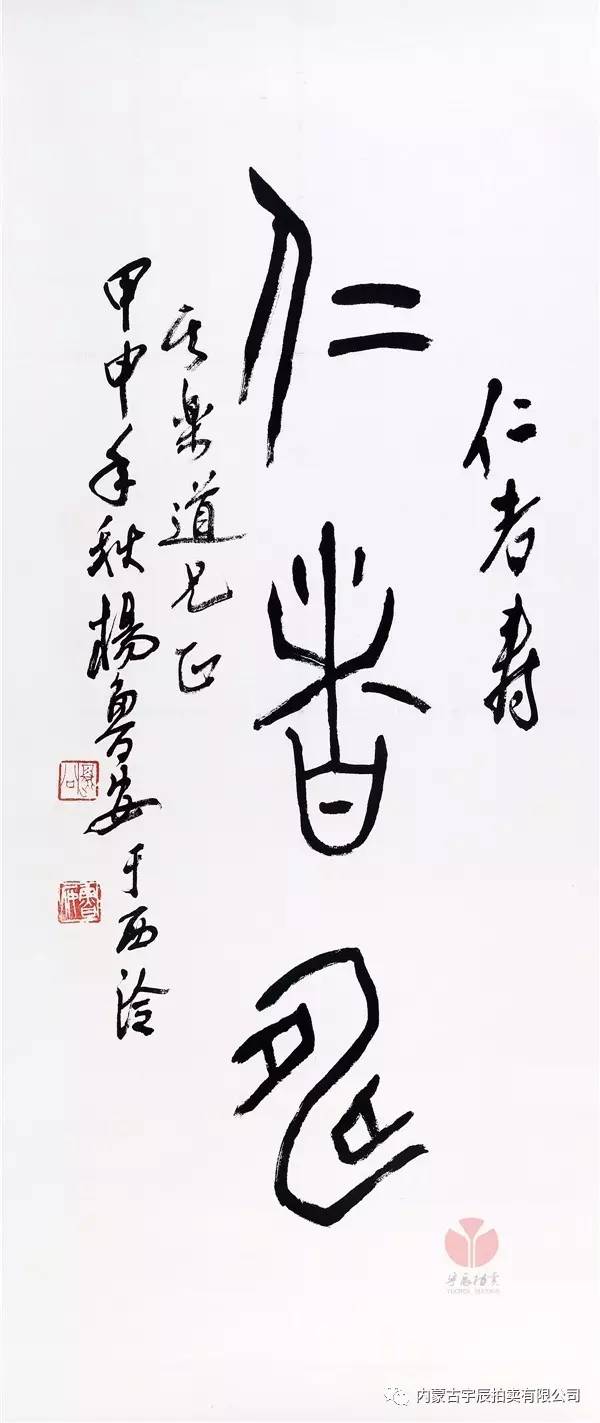 仁者寿
仁者壽
楽道兄正
甲申年秋楊魯安于西泠
宇辰拍卖
内蒙古宇辰拍卖有限公司